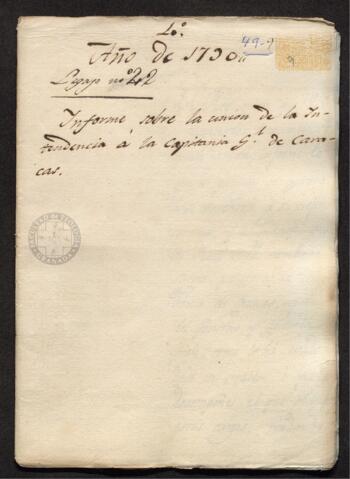 Lo.
49-9
Año de 1790
9
Legajo no. 22
Informe sobre la union de la In-
tendencia à la Capitania Gl. de Cara-
cas.